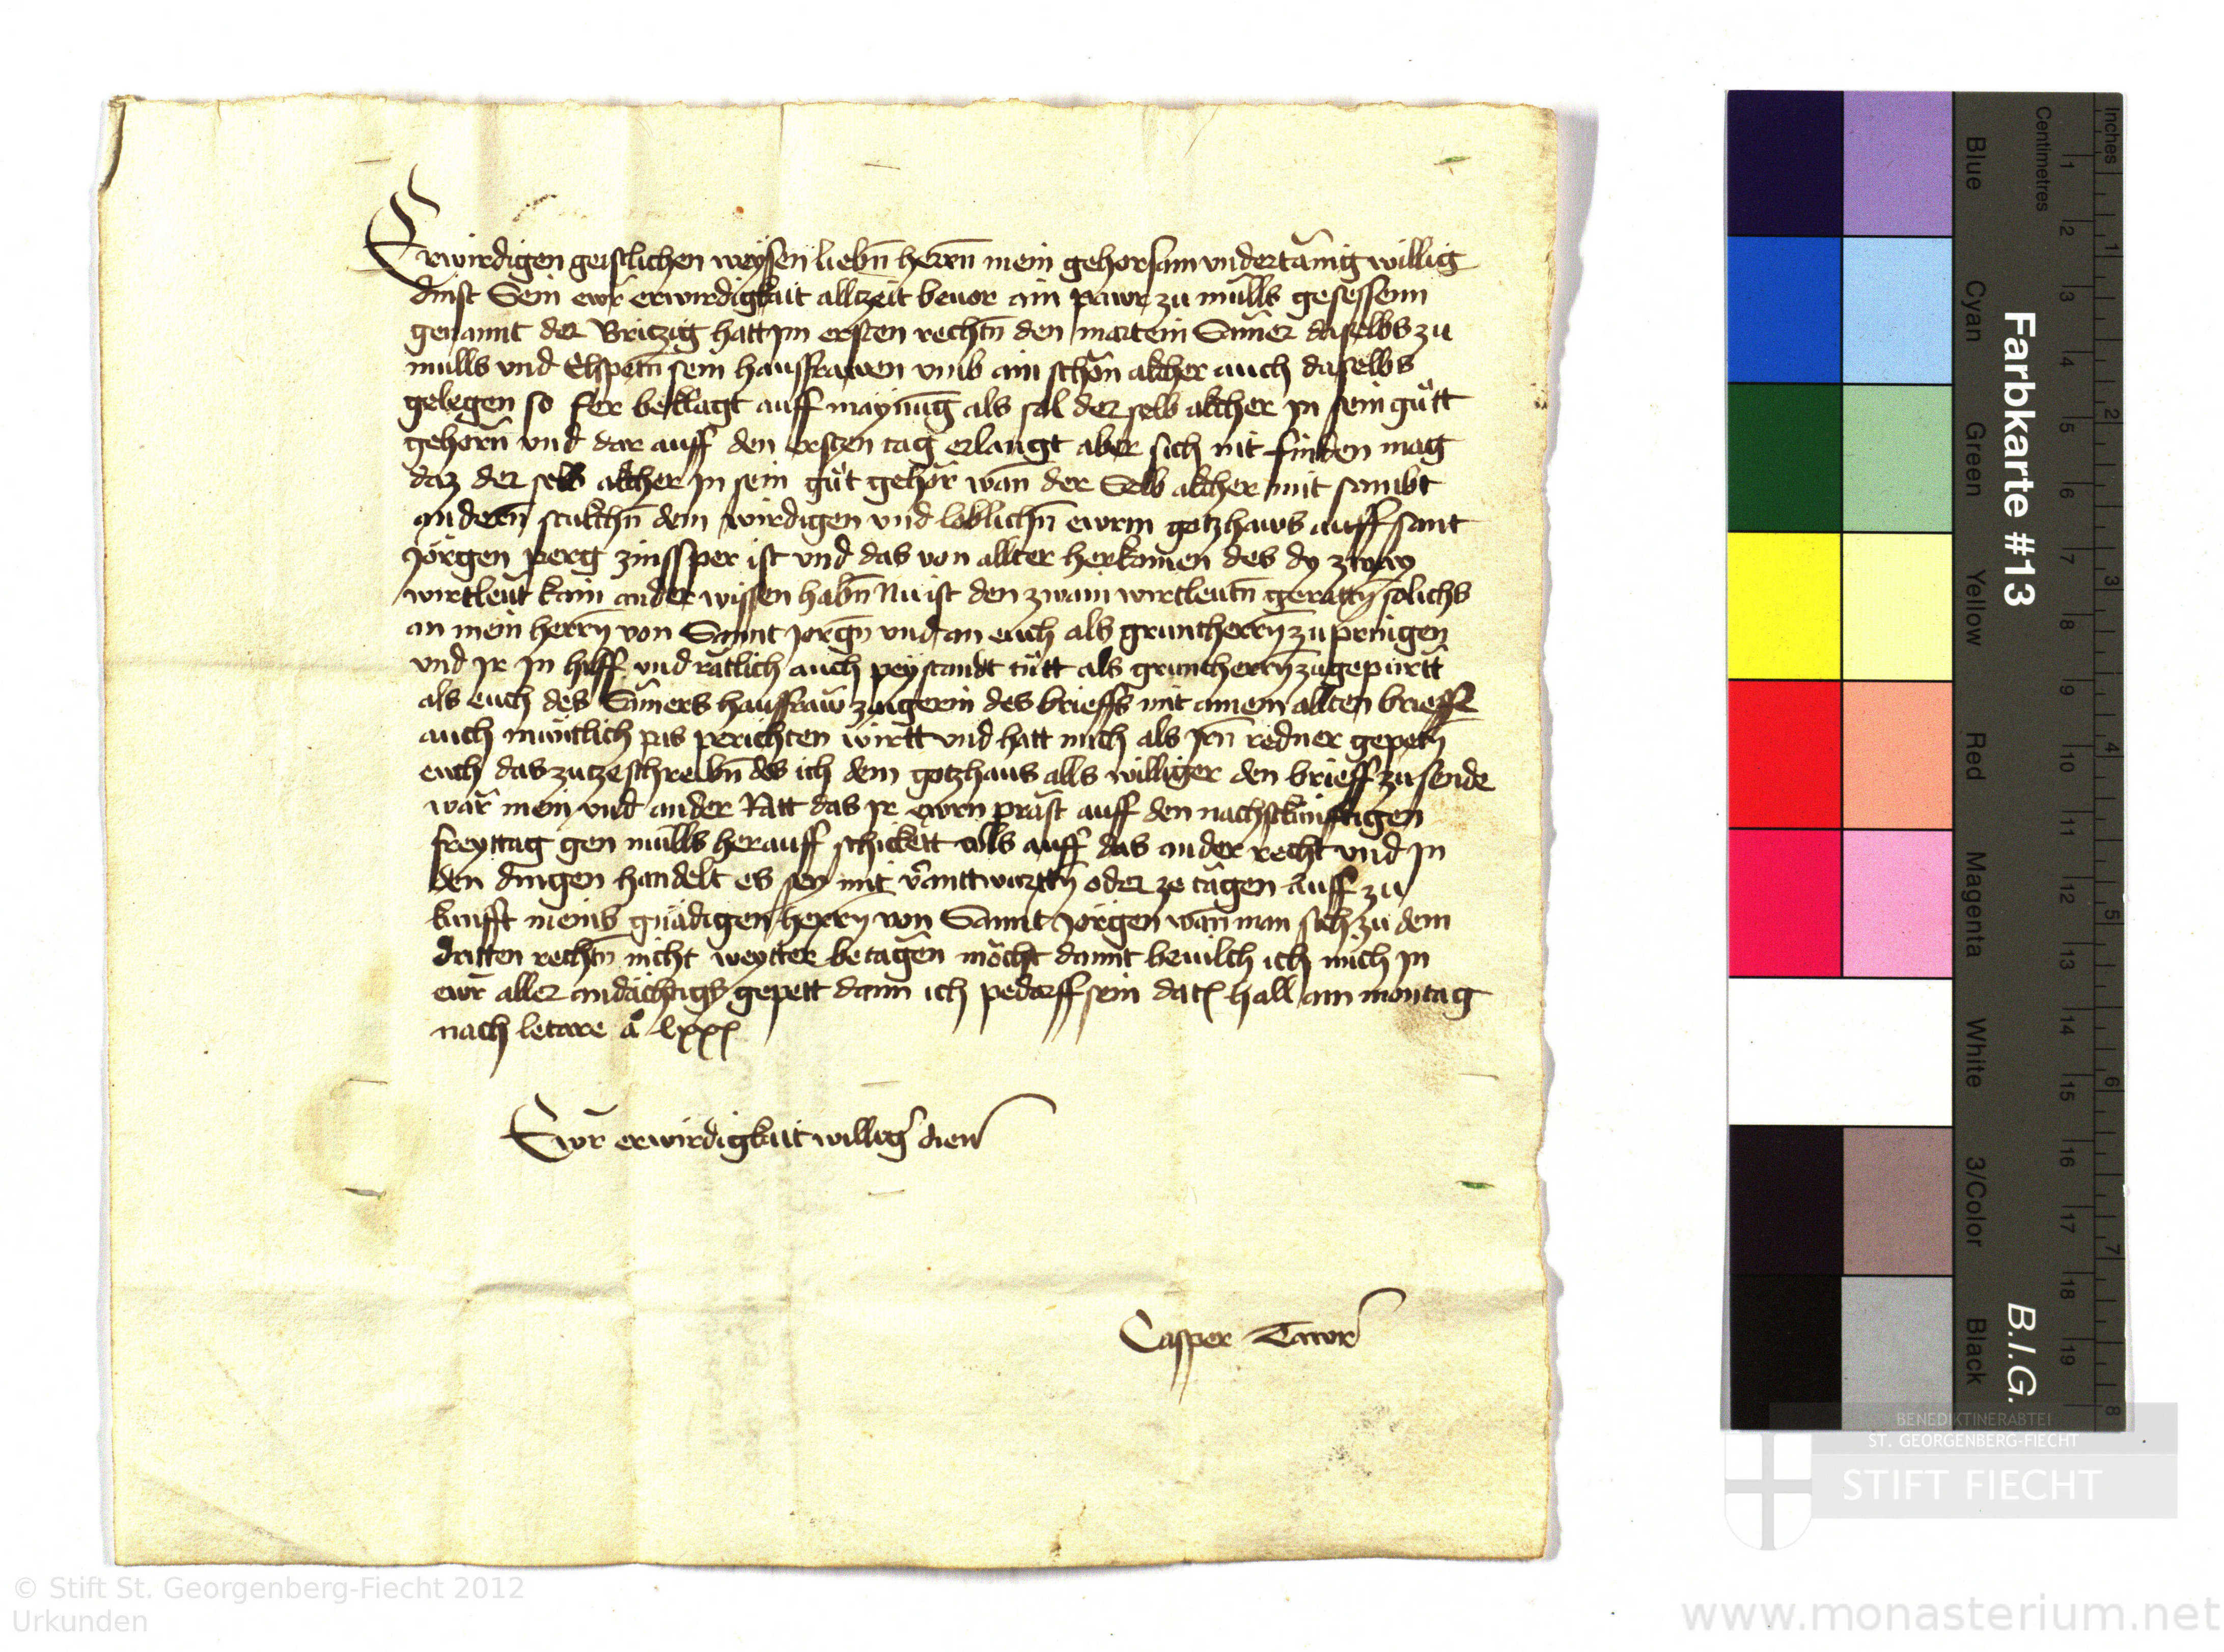 Erwirdigen geistlichen weysen liebn̄ herrn̄ mein gehorsam vndertānig willig
dinst Sein ewr̄ erwirdigkait allczeit beuor ain pawr zu mülls gesessenn
genannt der Britzig hatt jm ersten rechtn̄ den martein Sāmer daselbs zu
mülls vnd Elspetn̄ sein hausfrawen vmb ain akcher auch daselbs
gelegen so fer beklagt auff maynūg als sol der selb akcher jn sein gůtt
gehorn̄ vnd dar auff den ersten tag erlangt aber sich nit finden mag
daz der selb akcher jn sein gůt gehör wān der Selb akcher mit sambt
andern̄ stukchn̄ dem wirdigen vnd loblichn̄ ewrm gotzhaws auff sant
Jörgen perg zinssper ist vnd das von allter herkōmen des dy zway
wirtleut kain ander wissen habn̄ Nu ist den zwain wirtleutn̄ geratn̄ solichs
an mein herrn̄ von Sannt jorgn̄ vnd an euch als gruntherrn̄ zu pringen
vnd jr jn hilff vnd rätlich auch peystandt tůtt als gruntherrn̄ zugepürtt
als euch des Sāmers hausfraw zaigerin des brieffs mit ainem allten brieffe
auch müntlich pas perichten wirtt vnd hatt mich als jrn̄ redner gepetn̄
euch das zutzeschreibn̄ des ich dem gotzhaus alls williger den brieff zusende
wār mein vnd ander Ratt das jr ewrn präst auff den nachstkünfftigen
freyttag gen mülls herauff schickett als auff das ander recht vnd jn
den dingen handelt es sey mit v̄anttwurttn̄ oder ze tāgen auff zu
kunfft meins gnädigen herrn̄ von Sannt Jörgen wān man sich zu dem
dritten rechtn̄ nicht weytter betagen möcht damit beuilch ich mich jn
ewr̄ aller andächtigs gepett dann ich pedarff sein dat(um) hall am montag
nach letare a° lxxx
Ewr̄ erwirdigkait williḡ dien̄
Casper Tawr̄
Farbkarte #13
B.I.G.
Inches
Centimetres
1 2 3 4 5 6 7 8 9 10 11 12 13 14 15 16 17 18 19
1 2 3 4 5 6 7 8
Blue
Cyan
Green
Yellow
Red
Magenta
White
3/Color
Black
BENEDIKTINERABTEI
ST. GEORGENBERG-FIECHT
STIFT FIECHT
© Stift St. Georgenberg-Fiecht 2012
Urkunden
www.monasterium.net